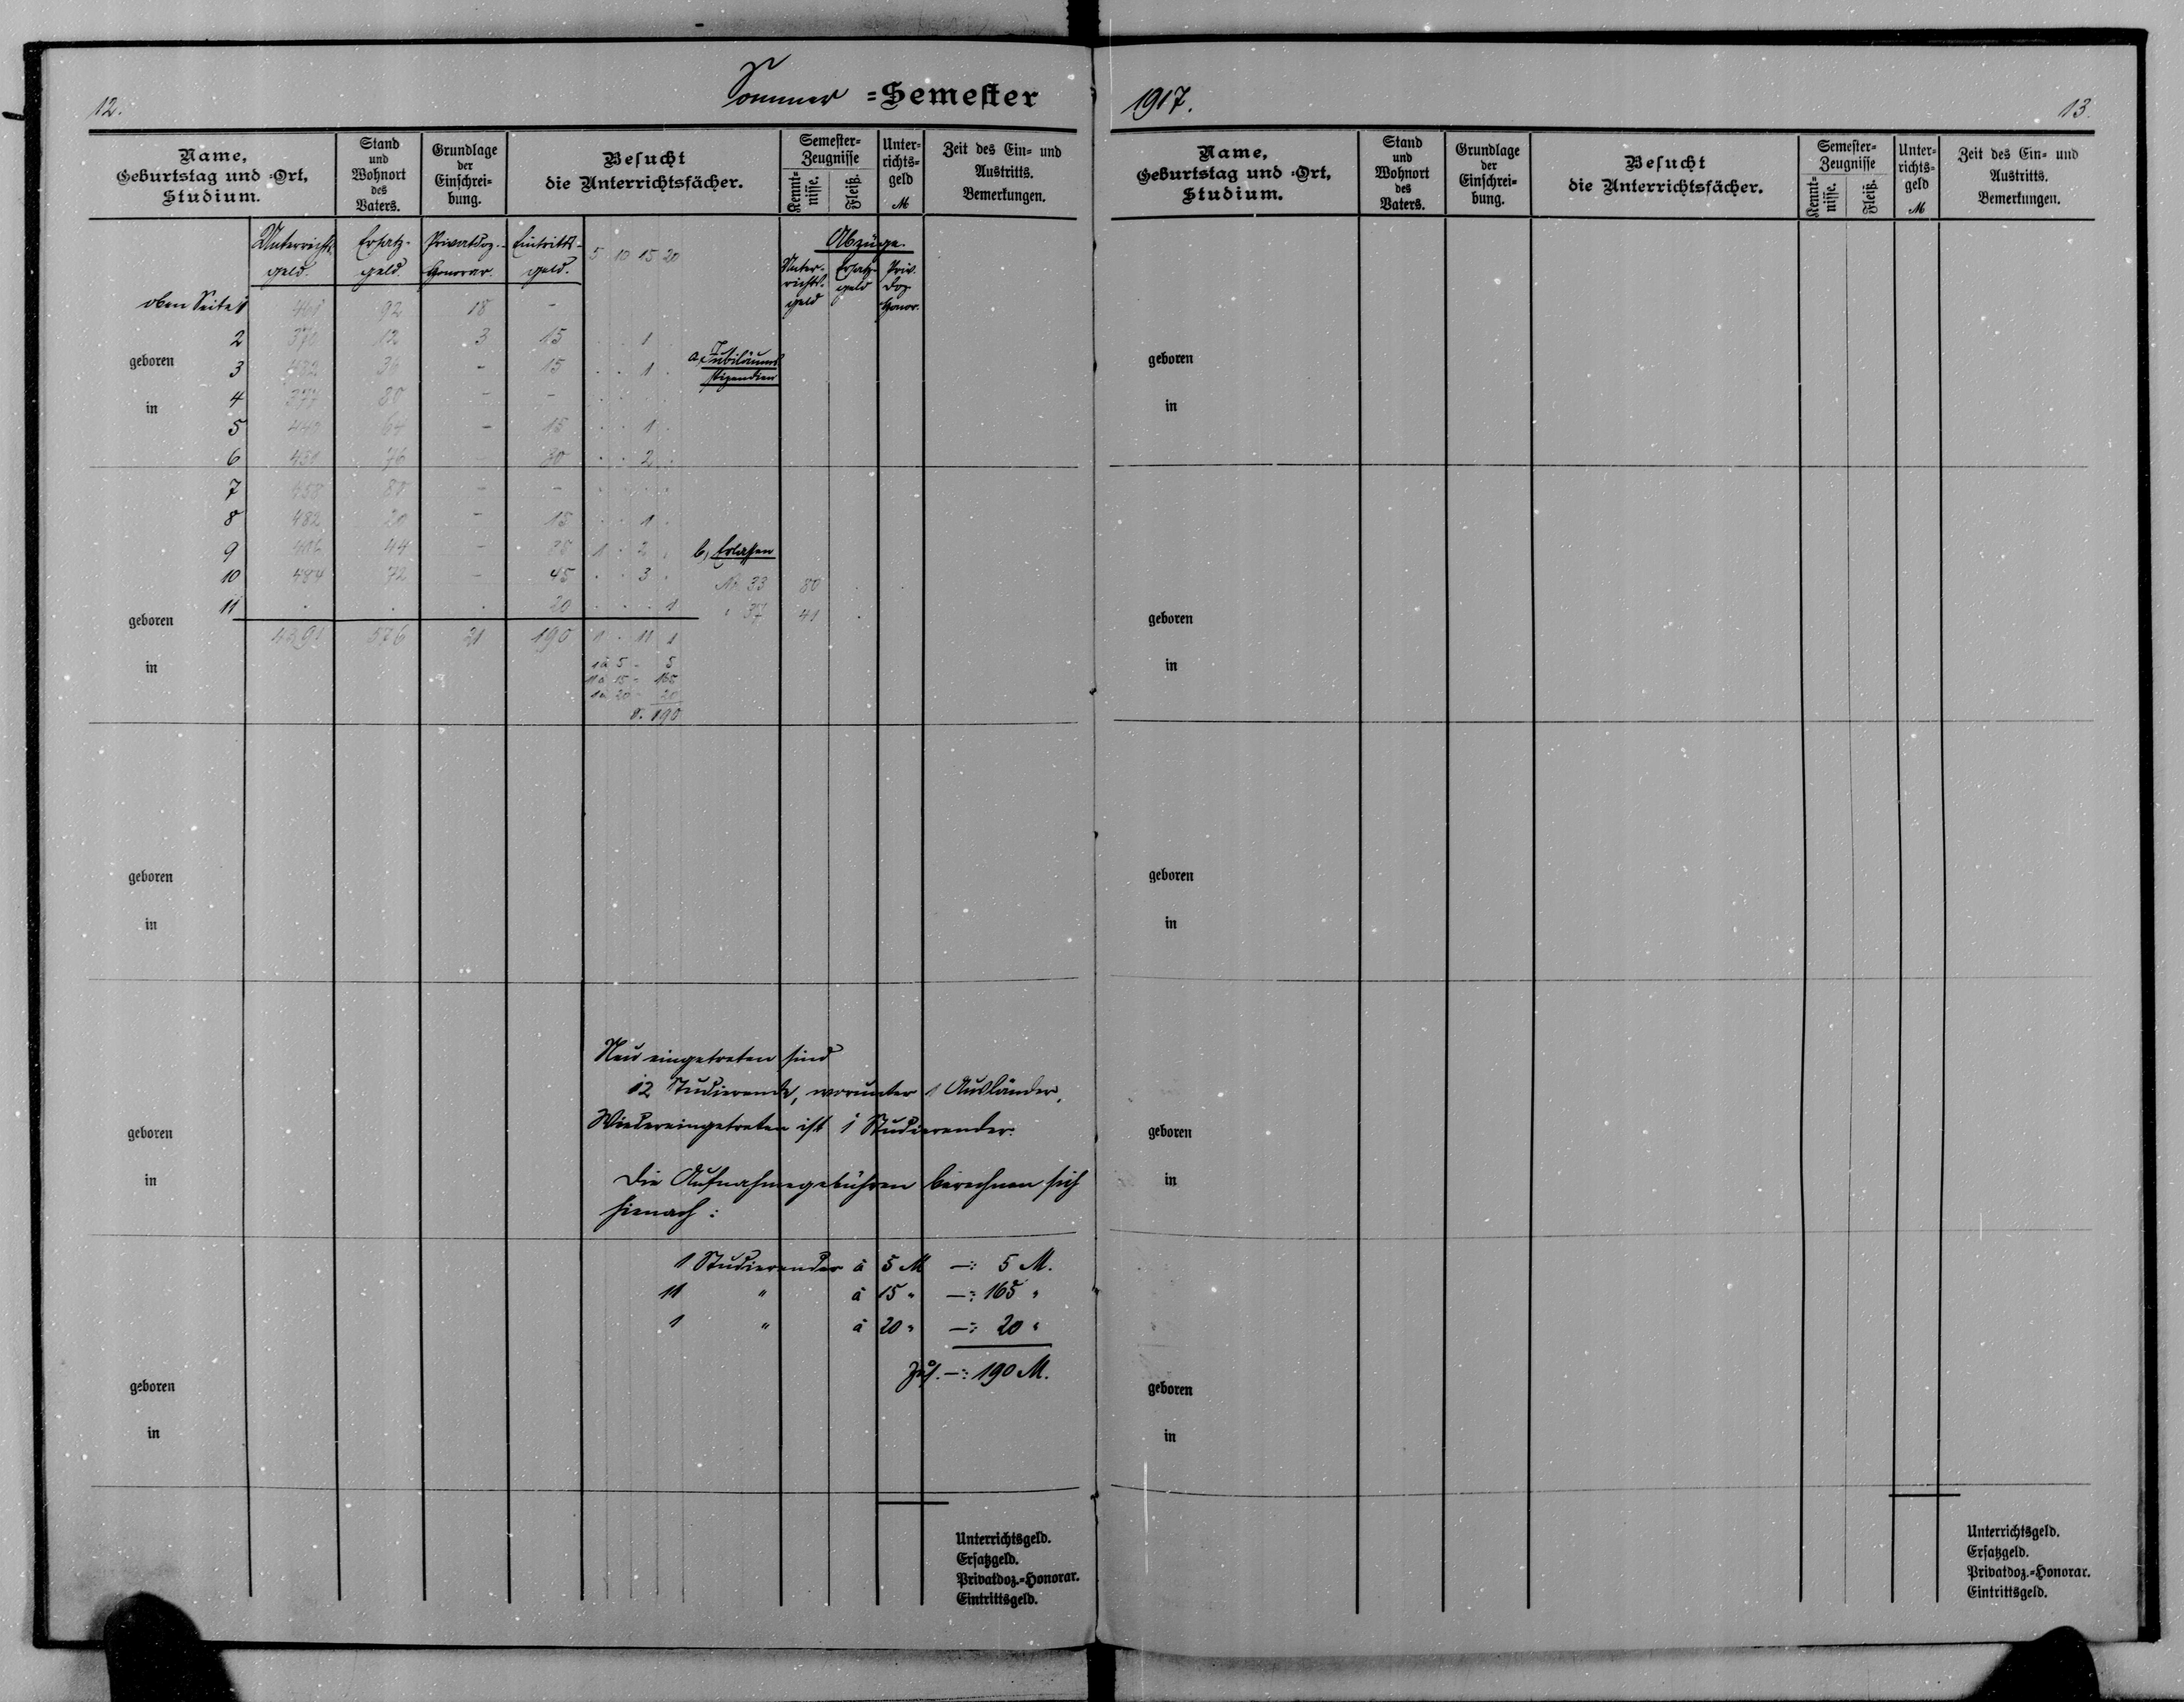 12.
Sommer =Semester
1917.
13.
Name,
Geburtstag und =Ort,
Studium.
Stand
und
Wohnort
des
Vaters.
Grundlage
der
Einschrei=
bung.
Besucht
die Unterrichtsfächer.
Semester=
Zeugnisse
Kennt=
nisse.
Fleiß.
Unter=
richts=
geld
M
Zeit des Ein= und
Austritts.
Bemerkungen.
Unterrichts-
geld.
Ersatz-
geld.
Privatdoz.-
Honorar.
Eintritts-
geld.
5 10 15 20
Abzüge.
Unter-
richts-
geld
Ersatz-
geld
Priv.
Doz.
Honor.
oben Seite 1 92 18 -
2 370 12 3 15 . . 1 .
a, Jubiläums
stipendien
geboren
3 36 - 15 . . 1 .
in
4 377 80 - - . . . .
5 64 - 15 . . 1 .
6 451 76 - 30 . . 2 .
7 458 80 - - . . . .
8 482 20 - 15 . . 1 .
9 44 - 35 1 . 2 .
b, Erlassen
10 484 72 - 45 . . 3 .
No 33 80 . .
11 . . . 20 . . . 1
" 37 41 .
geboren
4391 576 21 190 1 . 11 1
in
1 à 5 - 5
11 à 15 - 165
1 à 20 - 20
S. 190
geboren
in
Neu eingetreten sind
12 Studierende, worunter 1 Ausländer,
Wiedereingetreten ist 1 Studierender.
geboren
in
Die Aufnahmegebühren berechnen sich
hienach :
1 Studierender à 5 M —: 5 M.
11 " à 15 " —: 165 "
1 " à 20 " —: 20 "
Zus. —: 190 M.
geboren
in
Unterrichtsgeld.
Ersatzgeld.
Privatdoz.=Honorar.
Eintrittsgeld.
Name,
Geburtstag und =Ort,
Studium.
Stand
und
Wohnort
des
Vaters.
Grundlage
der
Einschrei=
bung.
Besucht
die Unterrichtsfächer.
Semester=
Zeugnisse
Kennt=
nisse.
Fleiß.
Unter=
richts=
geld
M
Zeit des Ein= und
Austritts.
Bemerkungen.
geboren
in
geboren
in
geboren
in
geboren
in
geboren
in
Unterrichtsgeld.
Ersatzgeld.
Privatdoz.=Honorar.
Eintrittsgeld.